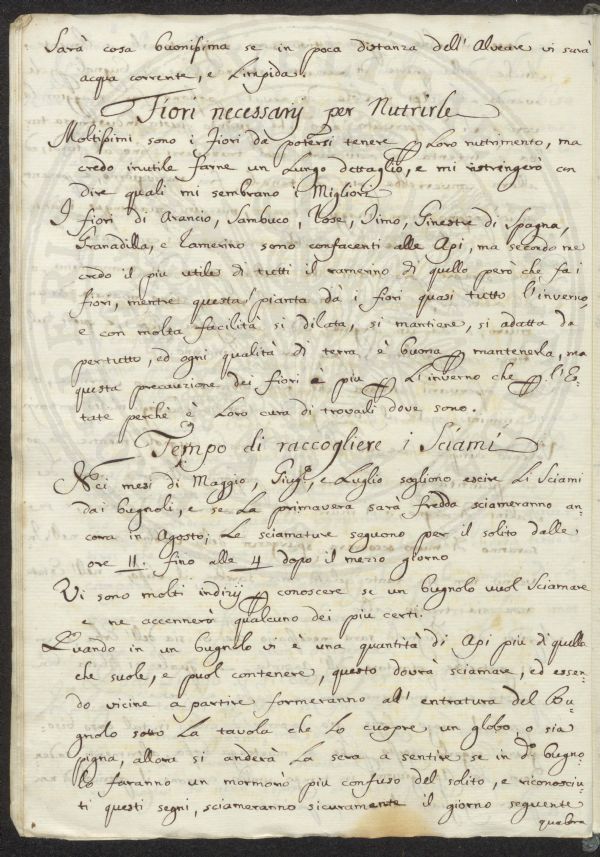 Sarà cosa buonissima se in poca distanza dell' Alveare vi sarà
acqua corrente, e Limpida.
Fiori necessarij per Nutrirle
Moltissimi sono i Fiori da potersi tenere p Loro nutrimento, ma
credo inutile farne un Lungo dettaglio, e mi ristringerò con
dire quali mi sembrano i Migliori
I fiori di Arancio, Sambuco, Rose, Timo, Ginestre di Spagna,
Granadilla, e Ramerino sono confacenti alle Api, ma secondo me
credo il più utile di tutti il ramerino di quello però che fa i
fiori, mentre questa pianta dà i fiori quasi tutto l'inverno,
e con molta facilità si dilata, si mantiene, si adatta da
pertutto, ed ogni qualità di terra è buona p mantenerla, ma
questa precauzione dei fiori è più p L'inverno che p l'Es-
tate perchè è Loro cura di trovarli dove sono.
Tempo di raccogliere i Sciami
Nei mesi di Maggio, Giug.o, e Luglio sogliono escire Li Sciami
dai bugnoli, e se La primavera sarà fredda sciameranno an-
cora in Agosto; Le sciamature seguono per il solito dalle
ore 11. fino alle 4 dopo il mezzo giorno
Vi sono molti indizij p conoscere se un bugnolo vuol Sciamare
e ne accennerò qualcuno dei più certi.
Quando in un bugnolo vi è una quantità di Api più di quella
che suole, e puol contenere, questo dovrà sciamare, ed essen-
do vicine a partire formeranno all' entratura del Bu-
gnolo sotto La tavola che Lo cuopre un globo, o sia
pigna, allora si anderà La sera a sentire se in d.o bugno-
lo faranno un mormorio più confuso del solito, e riconosciu-
ti questi segni, sciameranno sicuramente il giorno seguente
qualora